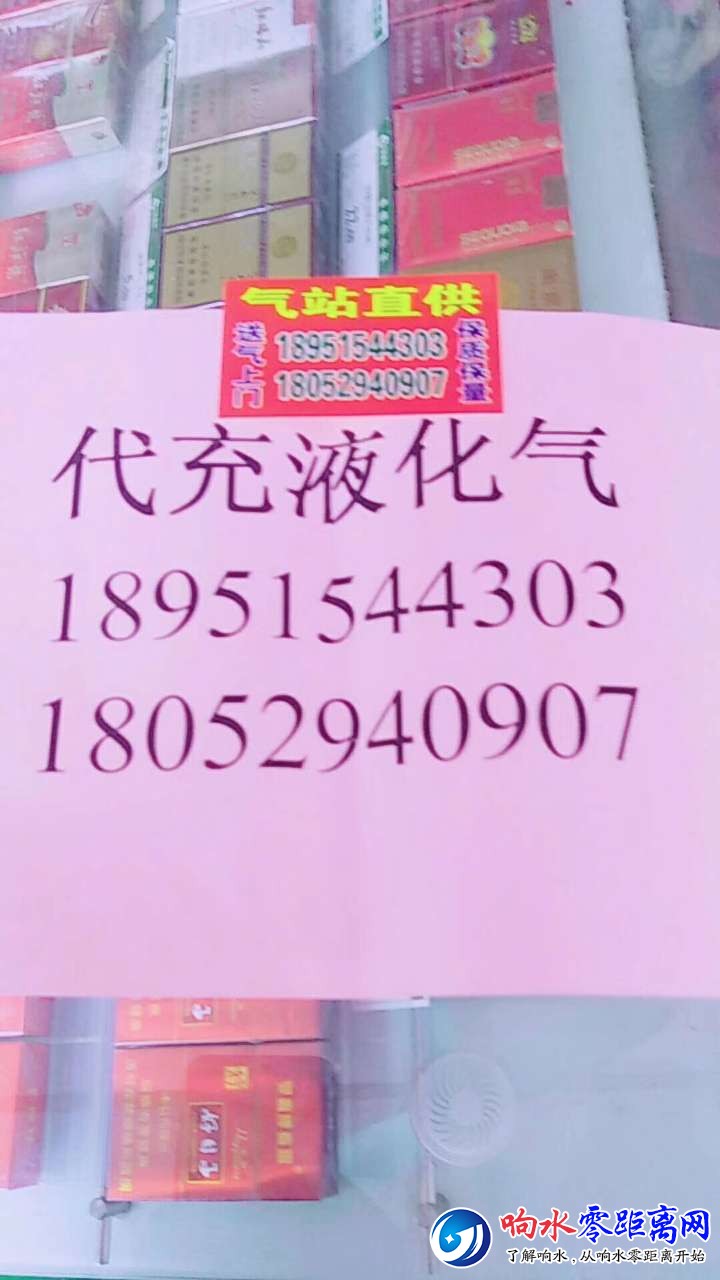 气站直供
送气上门
18951544303
18052940907
保质保量
代充液化气
18951544303
18052940907
响水零距离网
了解响水，从响水零距离开始